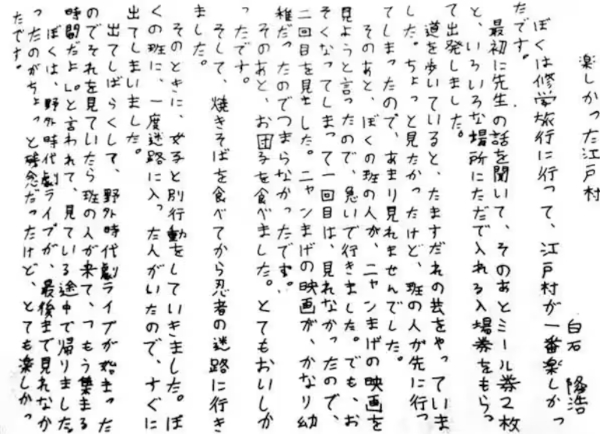 楽しかった江戸村
白石 隆浩
ぼくは修学旅行に行って、江戸村が一番楽しかっ
たです。
最初に先生の話を聞いて、そのあとミール券2枚
と、いろいろな場所にただで入れる入場券をもらっ
て出発しました。
道を歩いていると、たますだれの芸をやっていま
した。ちょっと見たかったけど、班の人が先に行っ
てしまったので、あまり見れませんでした。
そのあと、ぼくの班の人が、ニャンまげの映画を
見ようと言ったので、急いで行きました。でも、お
そくなってしまって一回目は、見れなかったので、
二回目を見ました。ニャンまげの映画が、かなり幼
稚だったのでつまらなかったです。
そのあと、お団子を食べました。とてもおいしか
ったです。
そして、焼きそばを食べてから忍者の迷路に行き
ました。
そのときに、女子と別行動をしていきました。ぼ
くの班に、一度迷路に入った人がいたので、すぐに
出てしまいました。
出てしばらくして、野外時代劇ライブが始まった
のでそれを見ていたら班の人が来て、「もう集まる
時間だよ。」と言われて、見ている途中で帰りました。
ぼくは、野外時代劇ライブが、最後まで見れなか
ったのがちょっと残念だったけど、とても楽しかっ
たです。